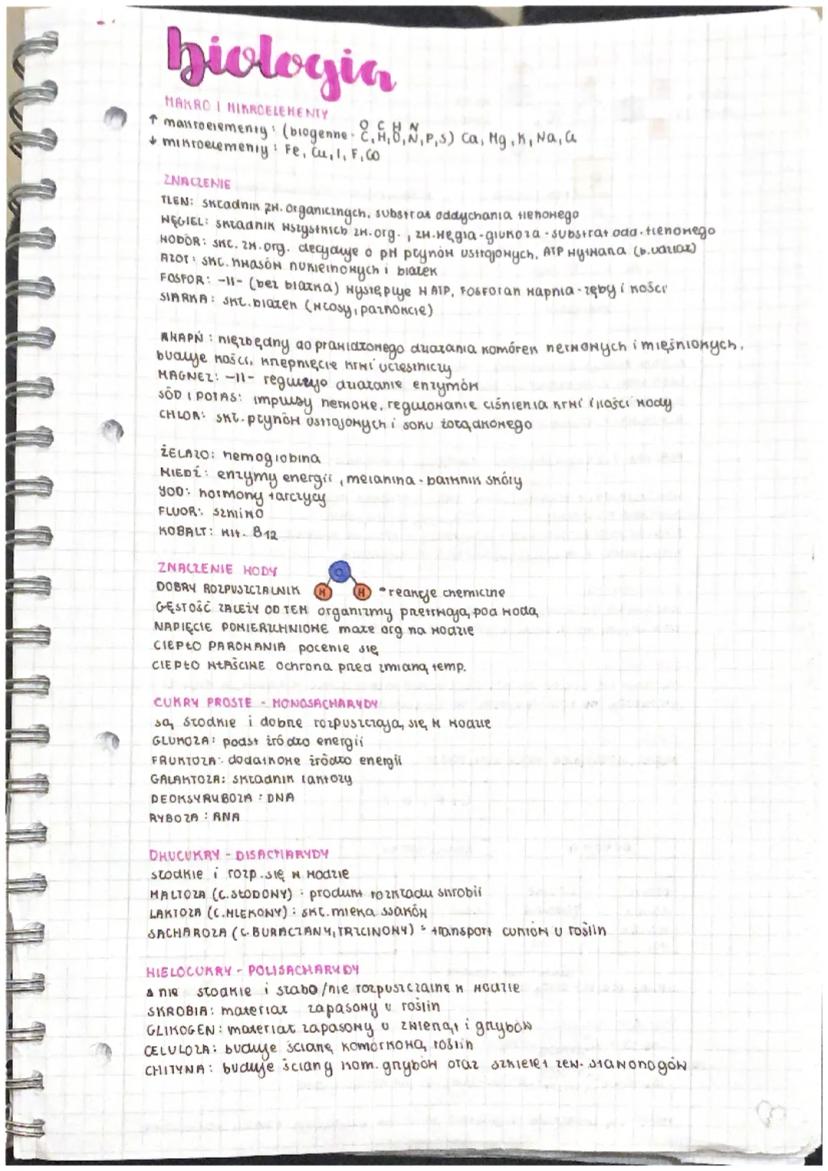 biologia
MAKRO I MIKROELEMENTY
↑ makroelementy: (biogenne - C, H, O, N, P, S) Ca, Mg, K, Na, Cl
O C H N
↓ mikroelementy: Fe, Cu, I, F, Co
ZNACZENIE
TLEN: składnik zw. organicznych, substrat oddychania tlenowego
WĘGIEL: składnik wszystkich zw. org., zw. węgla - glukoza - substrat odd. tlenowego
WODÓR: skł. zw. org. decyduje o pH płynów ustrojowych, ATP wytwarza
AZOT: skł. kwasów nukleinowych i białek
FOSFOR: -11- (bez białka) występuje w ATP, fosforan wapnia - zęby i kości
SIARKA: skł. białek (włosy, paznokcie)
WAPŃ: niezbędny do prawidłowego działania komórek nerwowych i mięśniowych,
buduje kości, krzepnięcie krwi uczestniczy
MAGNEZ: -11- reguluje działanie enzymów
SÓD I POTAS: impulsy nerwowe, regulowanie ciśnienia krwi i ilości wody
CHLOR: skł. płynów ustrojowych i soku żołądkowego
ŻELAZO: hemoglobina
MIEDŹ: enzymy energii, melanina - barwnik skóry
JOD: hormony tarczycy
FLUOR: szkliwo
KOBALT: wit. B12
ZNACZENIE WODY
O
DOBRY ROZPUSZCZALNIK H H • reakcje chemiczne
GĘSTOŚĆ ZALEŻY OD TEM organizmy przetrwają pod wodą
NAPIĘCIE POWIERZCHNIOWE małe org na wodzie
CIEPŁO PAROWANIA pocenie się
CIEPŁO WŁAŚCIWE ochrona przed zmianą temp.
CUKRY PROSTE - MONOSACHARYDY
są słodkie i dobrze rozpuszczają się w wodzie
GLUKOZA: podst źródło energii
FRUKTOZA: dodatkowe źródło energii
GALAKTOZA: składnik laktozy
DEOKSYRYBOZA: DNA
RYBOZA: RNA
DWUCUKRY - DISACHARYDY
słodkie i rozp. się w wodzie
MALTOZA (C. SŁODOWY): produkt rozkładu skrobii
LAKTOZA (C. MLEKOWY): skł. mleka ssaków
SACHAROZA (C. BURACZANY, TRZCINOWY): transport cukrów u roślin
WIELOCUKRY - POLISACHARYDY
nie słodkie i słabo/nie rozpuszczalne w wodzie
SKROBIA: materiał zapasowy u roślin
GLIKOGEN: materiał zapasowy u zwierząt i grzybów
CELULOZA: buduje ścianę komórkową roślin
CHITYNA: buduje ściany kom. grzybów oraz szkielet zew. stawonogów